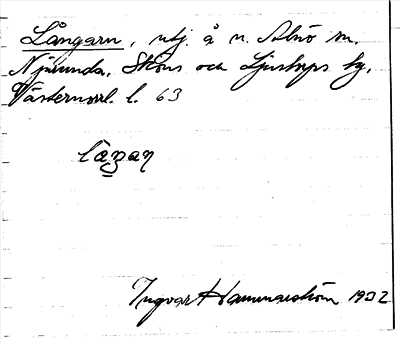 Långarn, utj. å n. Alnö sn.
Njurunda, Sköns och Ljustorps tg,
Västernorrl. l. 63
lågaŋ
Ingvar Hammarström 1932